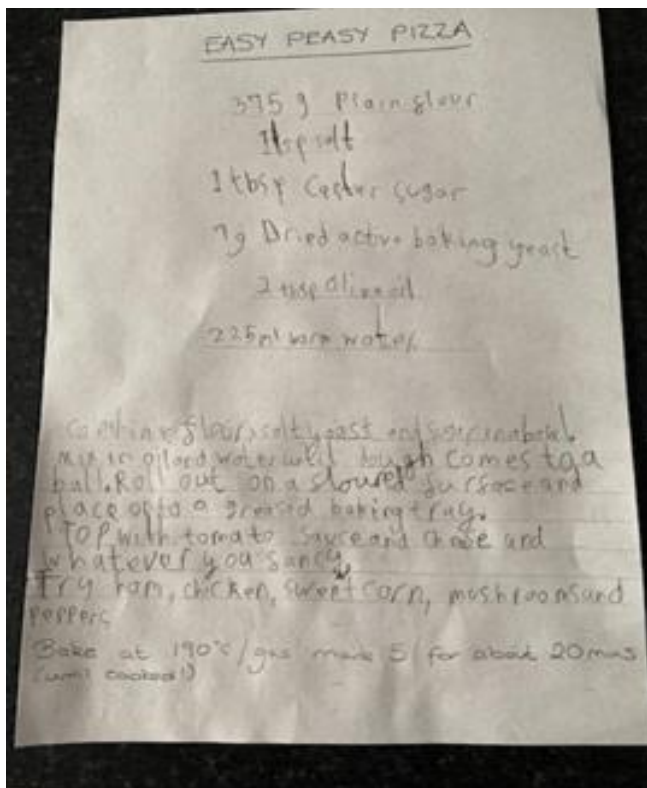 EASY PEASY PIZZA
375 g Plain flour
1tsp salt
1 tbsp Caster sugar
7g Dried active baking yeast
2 tbsp Olive oil
225ml warm water
Combine flour, salt, yeast and sugar in a bowl.
Mix in oil and water until dough comes to a
ball. Roll out on a floured surface and
place onto a greased baking tray.
TOP with tomato sauce and and
whatever you fancy.
Try ham, chicken, sweetcorn, mushrooms and
peppers
Bake at 190°c/gas mark 5 for about 20mins
(until cooked!)